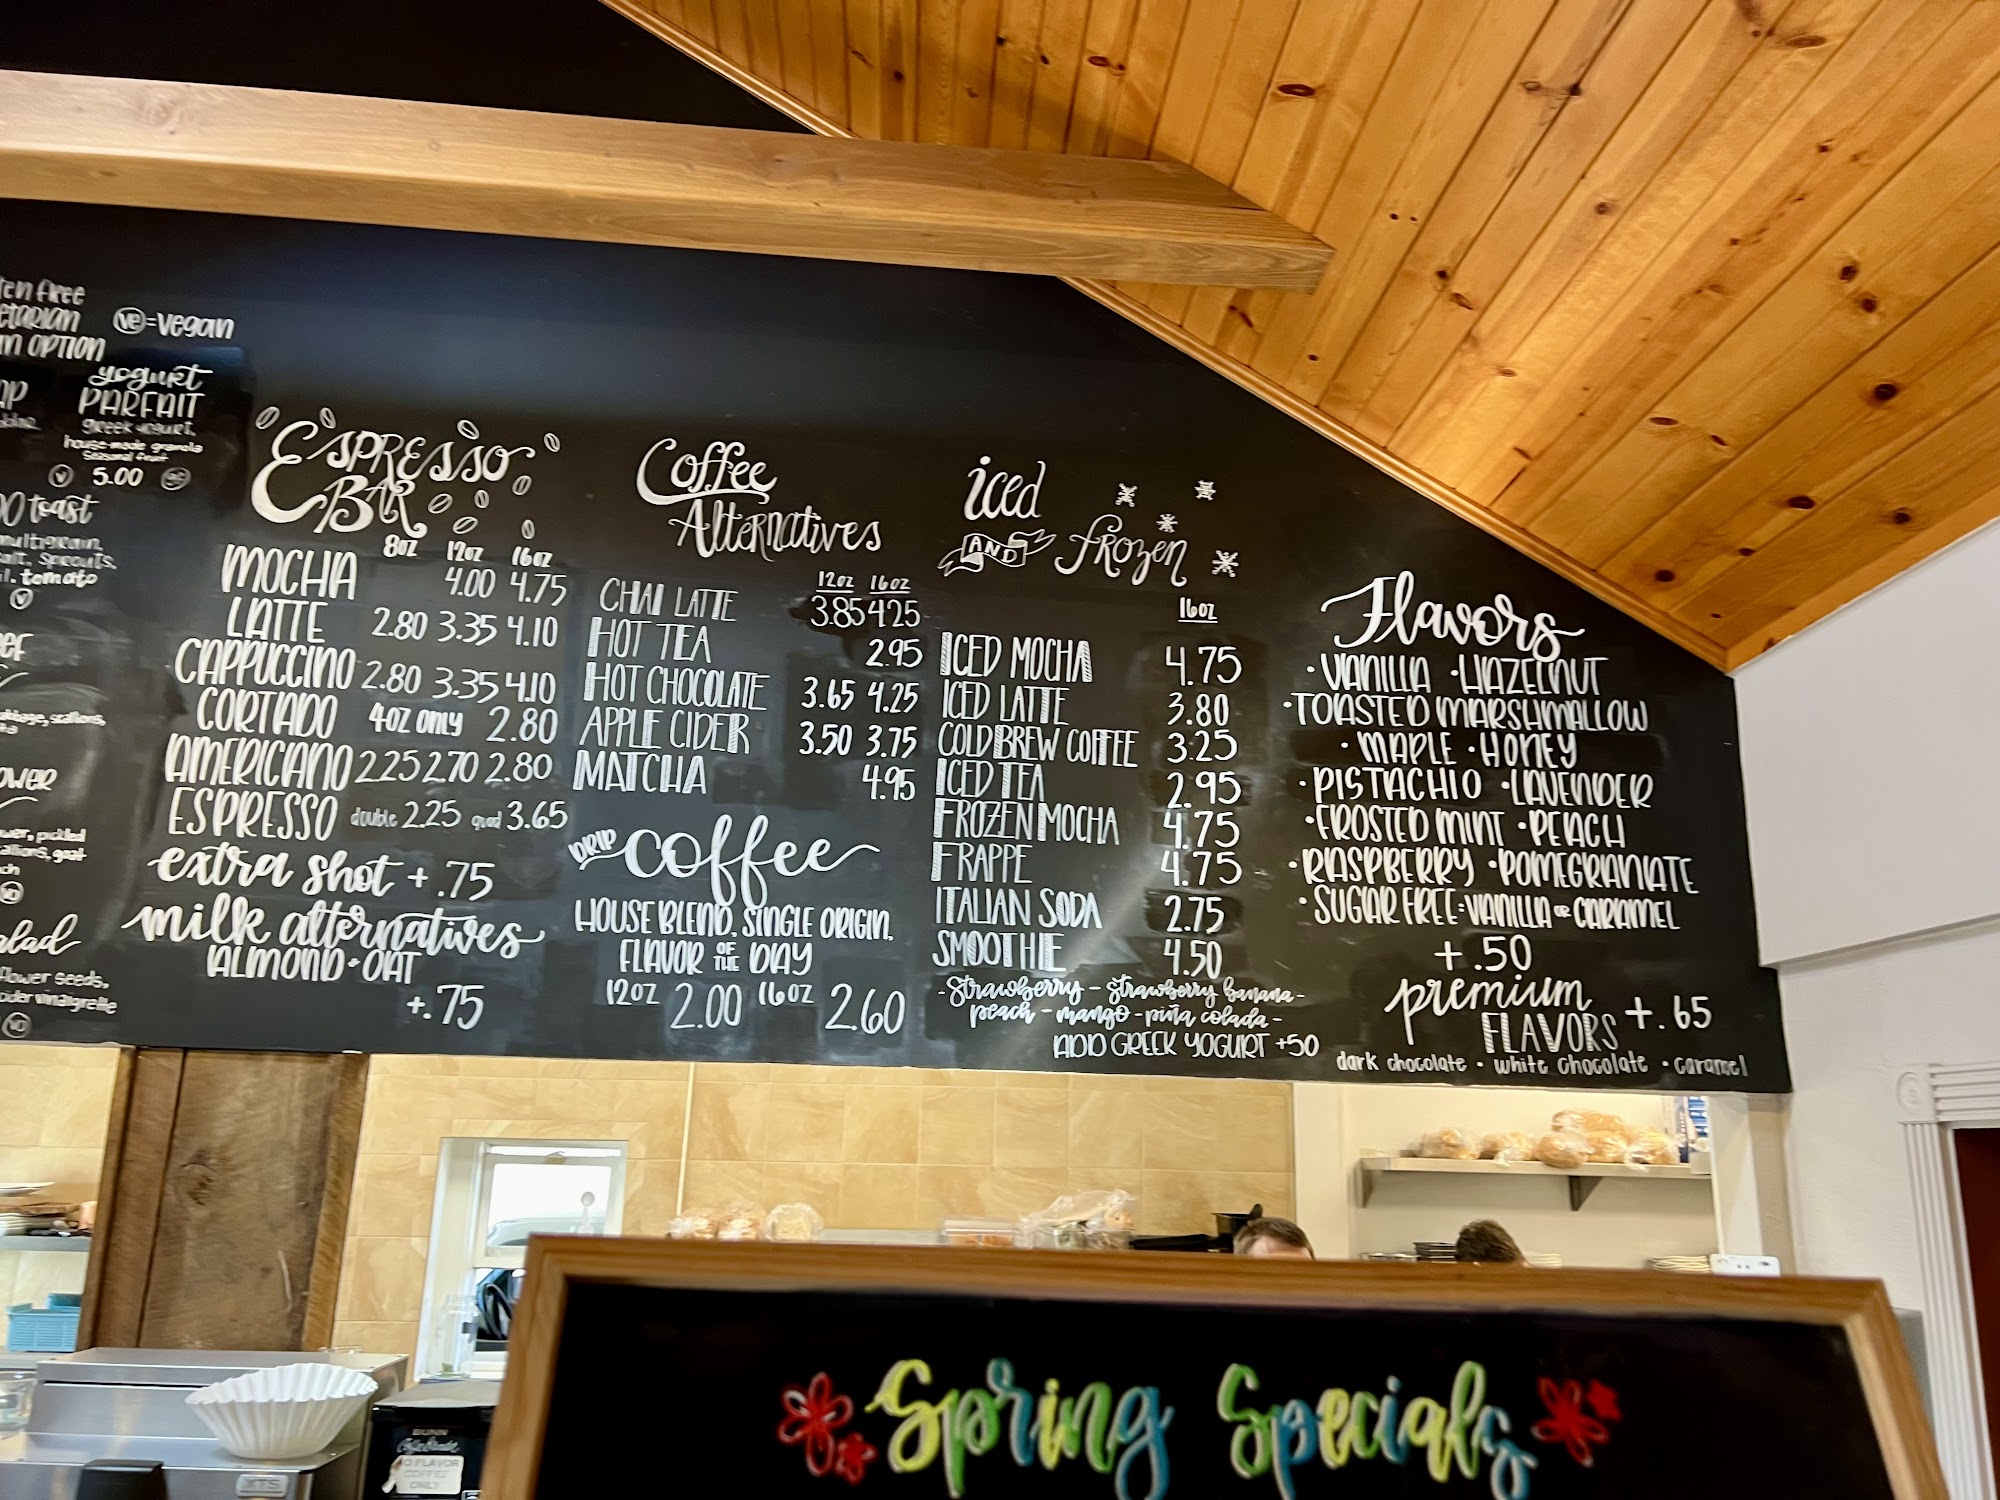 free
VE = vegan
OPTION
yogurt
PARFAIT
Greek yogurt,
house-made granola
Seasonal fruit
V 5.00
toast
multigrain,
sprouts,
tomato
V
scallions,
pickled
goat
flower seeds,
cider vinaigrette
ESPRESSO
BAR
8oz 12oz 16oz
MOCHA 4.00 4.75
LATTE 2.80 3.35 4.10
CAPPUCCINO 2.80 3.35 4.10
CORTADO 4oz only 2.80
AMERICANO 2.25 2.70 2.80
ESPRESSO double 2.25 quad 3.65
extra shot +.75
milk alternatives
ALMOND • OAT
+.75
Coffee
Alternatives
12oz 16oz
CHAI LATTE 3.85 4.25
HOT TEA 2.95
HOT CHOCOLATE 3.65 4.25
APPLE CIDER 3.50 3.75
MATCHA 4.95
DRIP coffee
HOUSE BLEND, SINGLE ORIGIN,
FLAVOR OF THE DAY
12oz 2.00 16oz 2.60
iced
AND frozen
16oz
ICED MOCHA 4.75
ICED LATTE 3.80
COLD BREW COFFEE 3.25
ICED TEA 2.95
FROZEN MOCHA 4.75
FRAPPE 4.75
ITALIAN SODA 2.75
SMOOTHIE 4.50
- strawberry - strawberry banana -
peach - mango - piña colada -
ADD GREEK YOGURT +50
Flavors
• VANILLA • HAZELNUT
• TOASTED MARSHMALLOW
• MAPLE • HONEY
• PISTACHIO • LAVENDER
• FROSTED MINT • PEACH
• RASPBERRY • POMEGRANATE
• SUGAR FREE: VANILLA OR CARAMEL
+.50
premium
FLAVORS +.65
dark chocolate • white chocolate • caramel
BUNN
FLAVOR
COFFEE
ONLY
XTS
Spring Specials